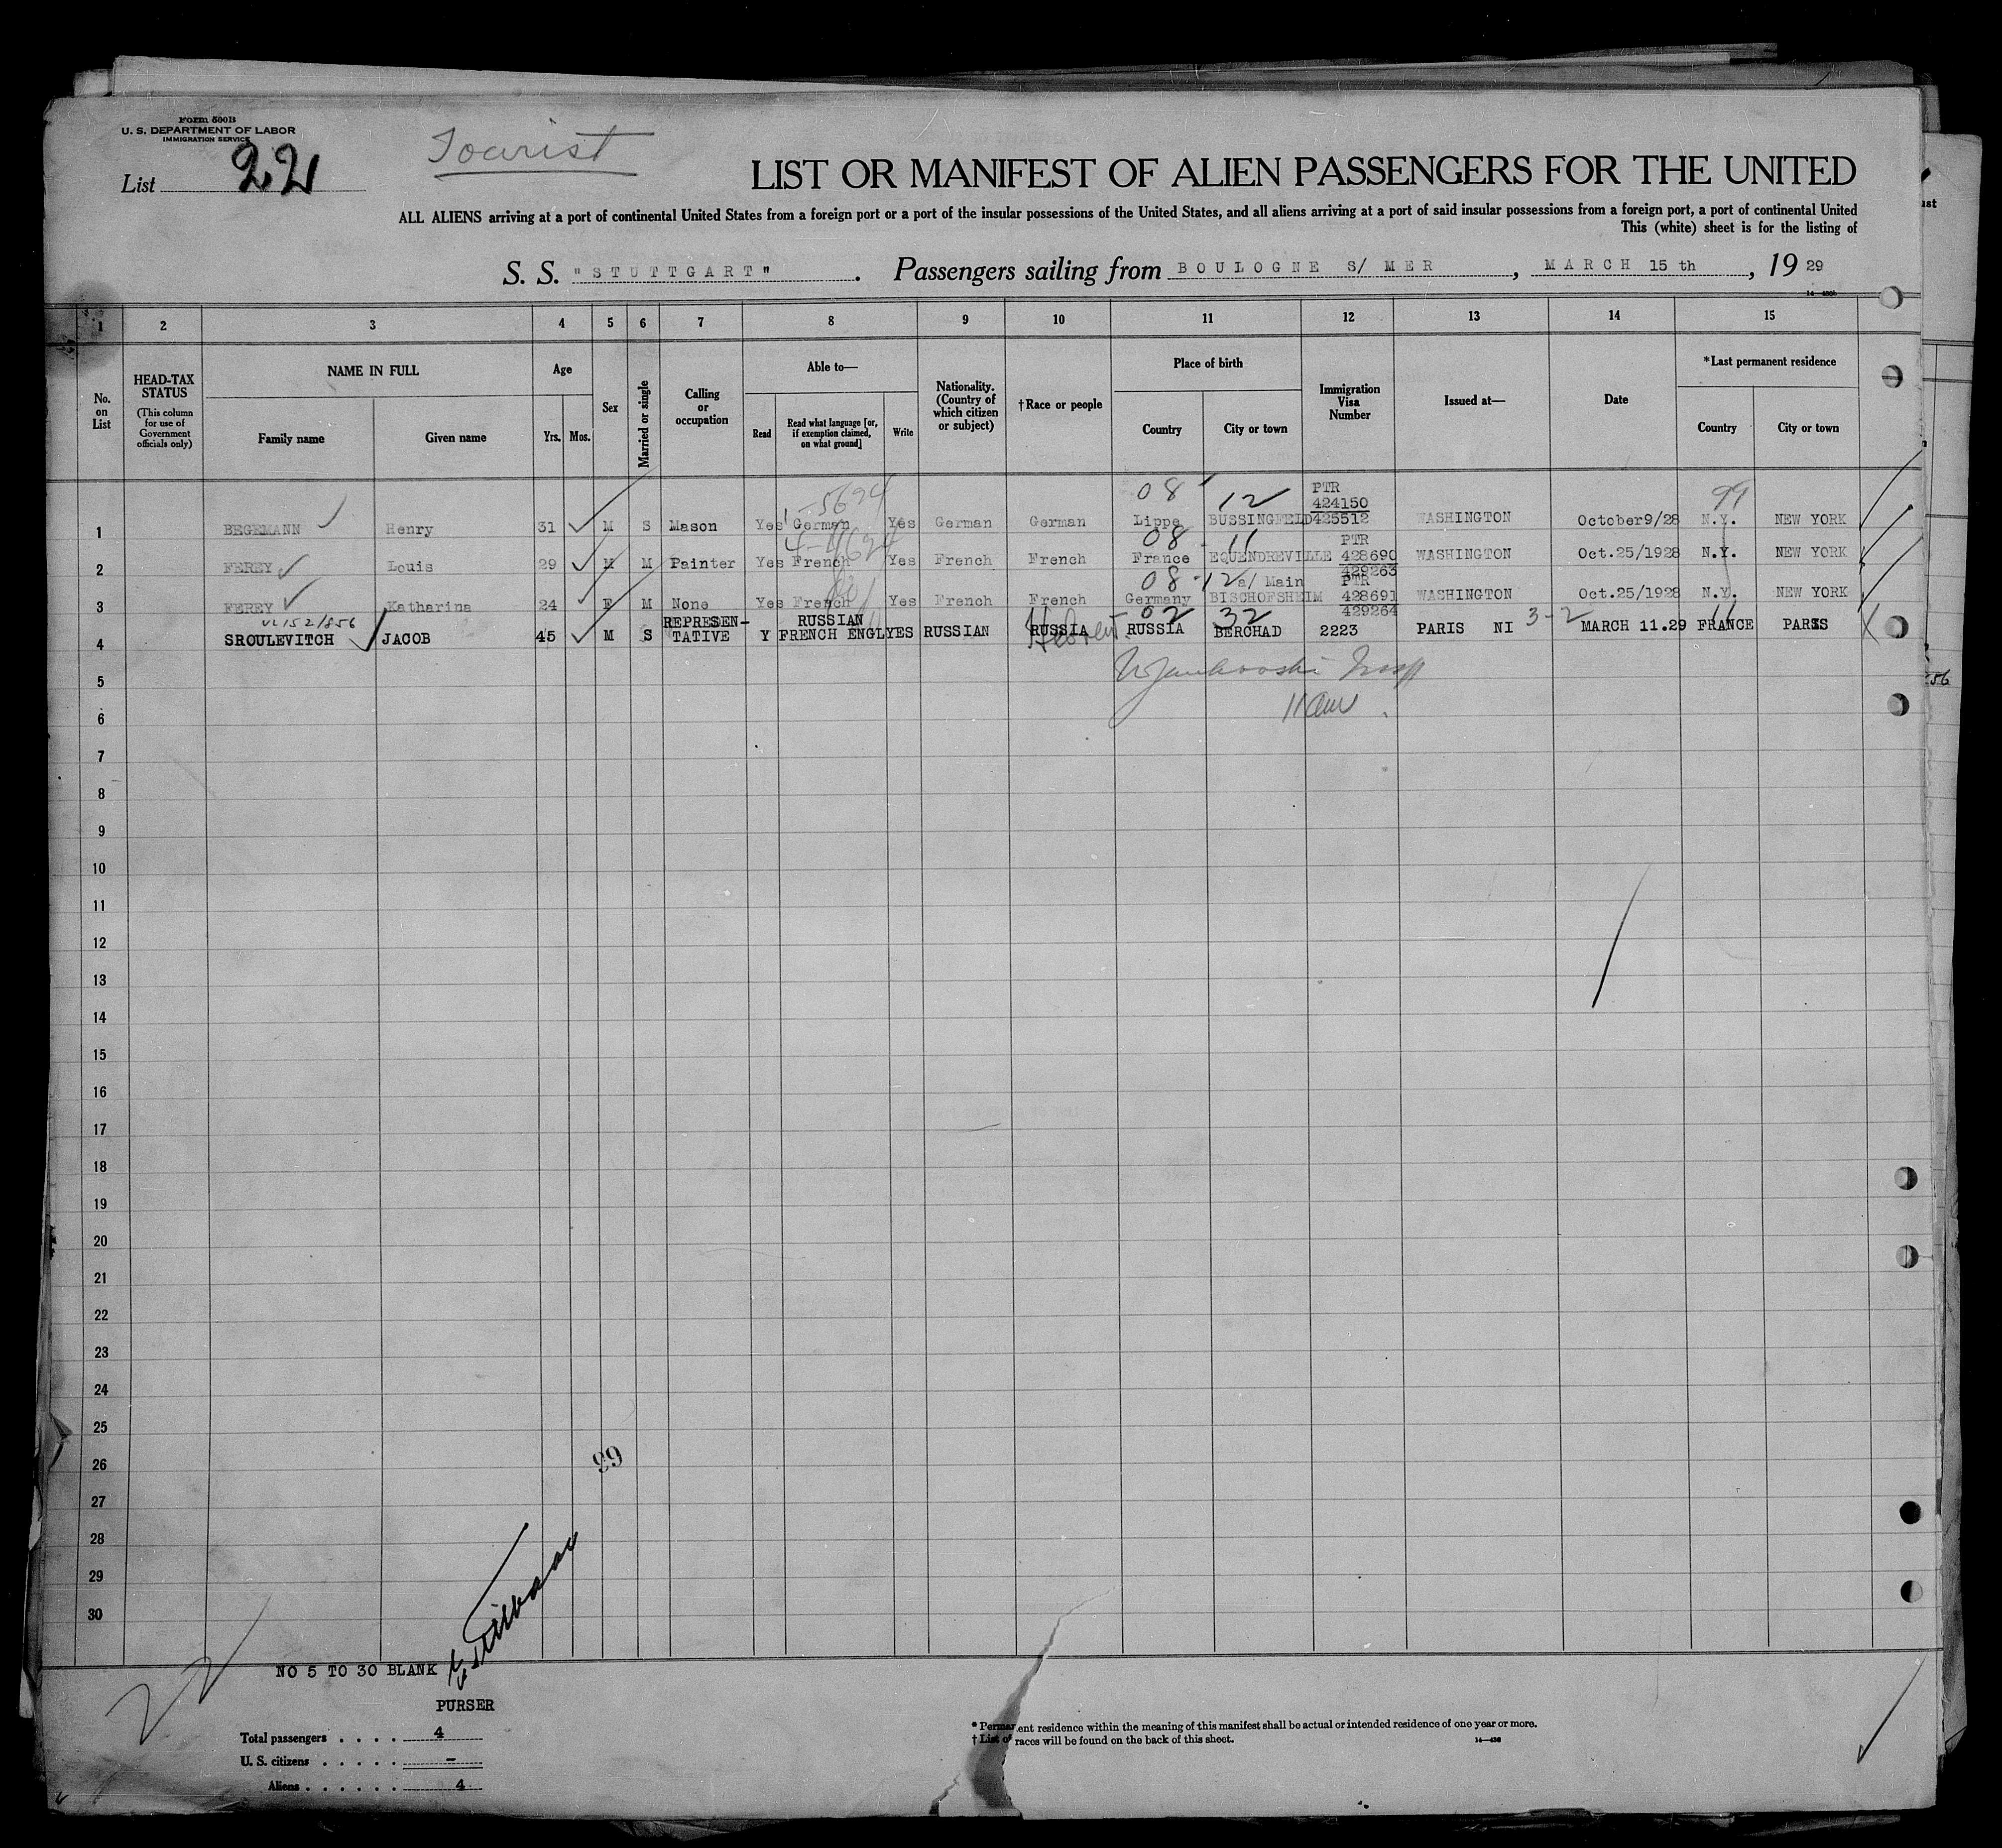 Form 500B
U. S. DEPARTMENT OF LABOR
IMMIGRATION SERVICE
List 22
Tourist
LIST OR MANIFEST OF ALIEN PASSENGERS FOR THE UNITED
ALL ALIENS arriving at a port of continental United States from a foreign port or a port of the insular possessions of the United States, and all aliens arriving at a port of said insular possessions from a foreign port, a port of continental United
This (white) sheet is for the listing of
S. S. "STUTTGART". Passengers sailing from BOULOGNE S/ MER, MARCH 15 th, 19 29
1 2 3 4 5 6 7 8 9 10 11 12 13 14 15
No. on List
HEAD-TAX STATUS
(This column for use of Government officials only)
NAME IN FULL
Family name
Given name
Age
Yrs. Mos.
Sex
Married or single
Calling or occupation
Able to—
Read
Read what language [or, if exemption claimed, on what ground]
Write
Nationality. (Country of which citizen or subject)
†Race or people
Place of birth
Country
City or town
Immigration Visa Number
Issued at—
Date
*Last permanent residence
Country
City or town
5624
08 12 PTR 99
424150
1 BEGEMANN Henry 31 M S Mason Yes German Yes German German Lippe BUSSINGFELD 425512 WASHINGTON October9/28 N.Y. NEW YORK
08 11 PTR
2 FEREY Louis 29 M M Painter Yes French Yes French French France EQUENDREVILLE 428690 WASHINGTON Oct.25/1928 N.Y. NEW YORK
429263
08 12 a/ Main PTR
3 FEREY Katharina 24 F M None Yes French Yes French French Germany BISCHOFSHEIM 428691 WASHINGTON Oct.25/1928 N.Y. NEW YORK
429264
152/856 REPRESEN- RUSSIAN 02 32 3-2 11
4 SROULEVITCH JACOB 45 M S TATIVE Y FRENCH ENGL YES RUSSIAN RUSSIA Hebrew RUSSIA BERCHAD 2223 PARIS NI MARCH 11.29 FRANCE PARIS
5
6
7
8
9
10
11
12
13
14
15
16
17
18
19
20
21
22
23
24
25
26
27
28
29
30
99
22
NO 5 TO 30 BLANK
PURSER
Total passengers . . . . 4
U. S. citizens . . . . . –
Aliens . . . . . . 4
* Permanent residence within the meaning of this manifest shall be actual or intended residence of one year or more.
† List of races will be found on the back of this sheet.